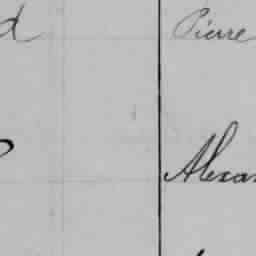 d Pierre
Alexa